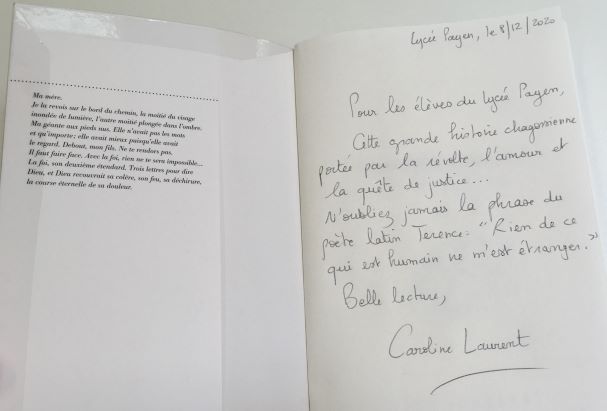 Ma mère.
Je la revois sur le bord du chemin, la moitié du visage
inondée de lumière, l'autre moitié plongée dans l'ombre.
Ma géante aux pieds nus. Elle n'avait pas les mots
et qu'importe ; elle avait mieux puisqu'elle avait
le regard. Debout, mon fils. Ne te rendors pas.
Il faut faire face. Avec la foi, rien ne te sera impossible...
La foi, son deuxième étendard. Trois lettres pour dire
Dieu, et Dieu recouvrait sa colère, son feu, sa déchirure,
la course éternelle de sa douleur.
Lycée Payen, le 8/12/2020
Pour les élèves du lycée Payen,
Cette grande histoire chagossienne
portée par la révolte, l'amour et
la quête de justice...
N'oubliez jamais la phrase du
poète latin Terence : "Rien de ce
qui est humain ne m'est étranger."
Belle lecture,
Caroline Laurent